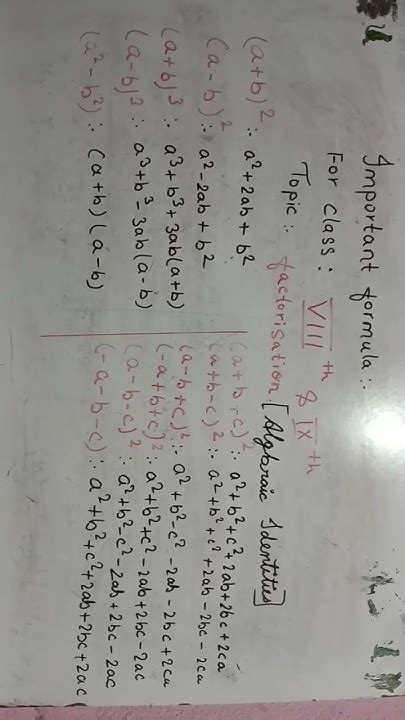 Important formula :-
For class : VIII th & IX th
Topic :- factorisation [Algebraic Identities]
(a+b)² :- a²+2ab+b²
(a-b)² :- a²-2ab+b²
(a+b)³ :- a³+b³+3ab(a+b)
(a-b)³ :- a³+b³-3ab(a-b)
(a²-b²) :- (a+b)(a-b)
(a+b+c)² :- a²+b²+c²+2ab+2bc+2ca
(a+b-c)² :- a²+b²+c²+2ab-2bc-2ca
(a-b+c)² :- a²+b²-c²-2ab-2bc+2ca
(-a+b+c)² :- a²+b²+c²-2ab+2bc-2ac
(a-b-c)² :- a²+b²-c²-2ab+2bc-2ac
(-a-b-c)² :- a²+b²+c²+2ab+2bc+2ac